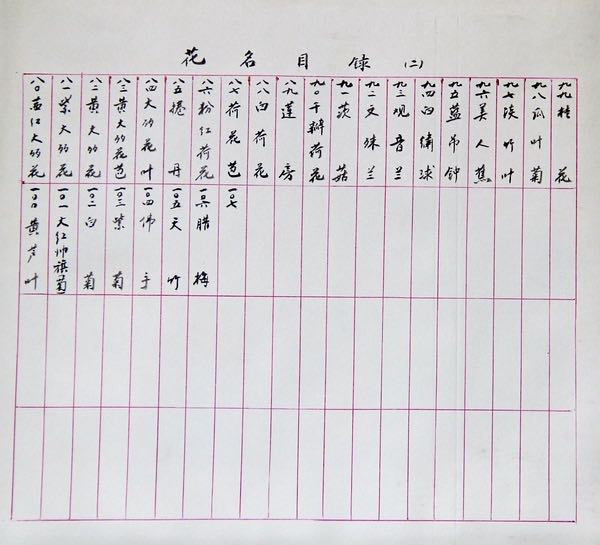 花名目录(二)
八〇红大丽花
八一紫大丽花
八二黄大丽花
八三黄大丽花苞
八四大丽花叶
八五捲丹
八六粉红荷花
八七荷花苞
八八白荷花
八九莲房
九〇千瓣荷花
九一茨菇
九二文殊兰
九三观音兰
九四白繡球
九五蓝吊钟
九六美人蕉
九七淡竹叶
九八瓜叶菊
九九桂花
一〇〇黄芦叶
一〇一大红帅旗菊
一〇二白菊
一〇三紫菊
一〇四佛手
一〇五天竹
一〇六腊梅
一〇七